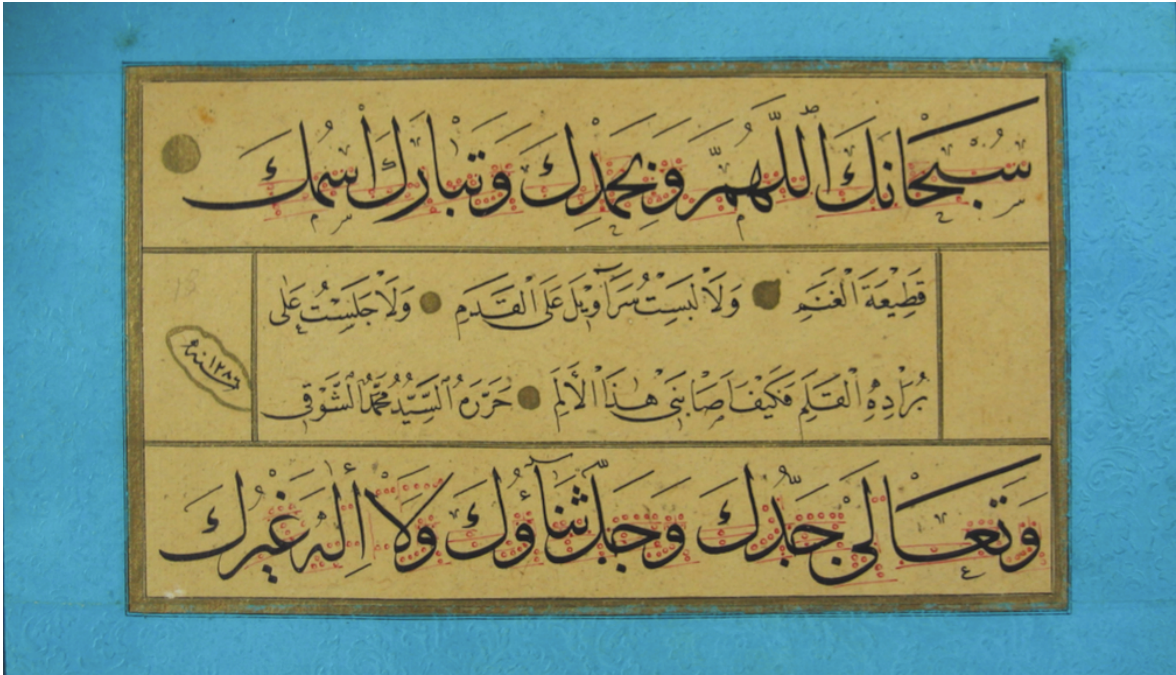 سُبْحَانَكَ ٱللَّهُمَّ وَبِحَمْدِكَ وَتَبَارَكَ اسْمُكَ
قَطِيعَةَ الْغَنَمِ وَلَا لَبِسْتُ سَرَاوِيلَ عَلَى الْقَدَمِ وَلَا جَلَسْتُ عَلَى
بُرَادِهِ الْقَلَمِ فَكَيْفَ اَصَابَنِي هٰذَا الْأَلَمِ حَرَّرَهُ السَّيِّدُ مُحَمَّدُ الشَّوْقِي
سنه ١٢٨٦
وَتَعَالَىٰ جَدُّكَ وَجَلَّ ثَنَآؤُكَ وَلَا إِلٰهَ غَيْرُكَ